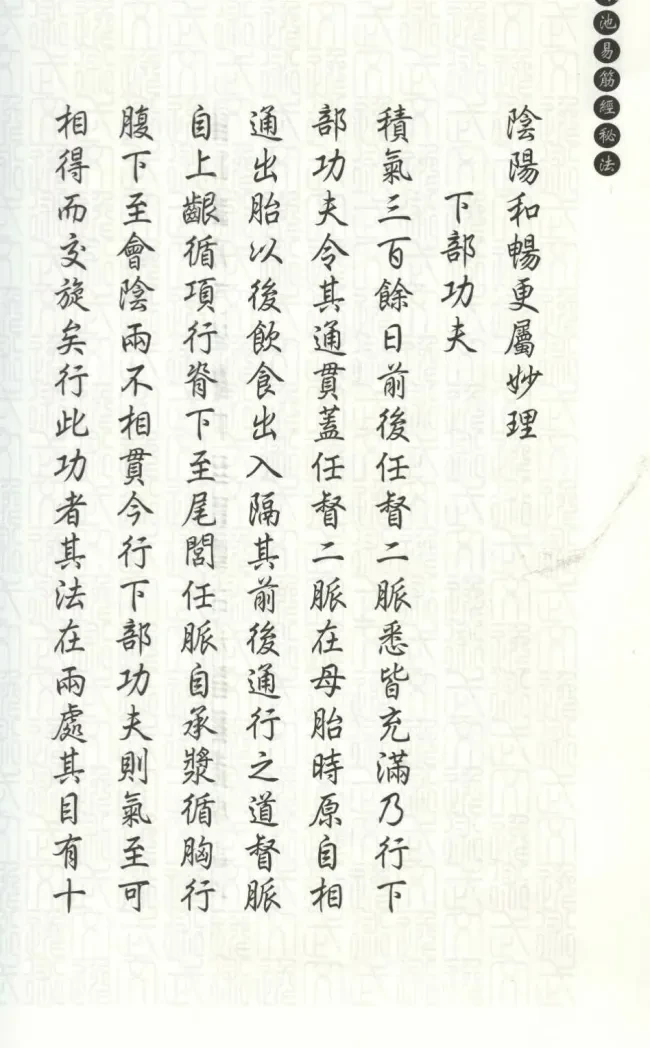 池易筋經秘法
陰陽和暢更屬妙理
下部功夫
積氣三百餘日前後任督二脈悉皆充滿乃行下
部功夫令其通貫蓋任督二脈在母胎時原自相
通出胎以後飲食出入隔其前後通行之道督脈
自上齦循項行脊下至尾閭任脈自承漿循胸行
腹下至會陰兩不相貫今行下部功夫則氣至可
相得而交旋矣行此功者其法在兩處其目有十